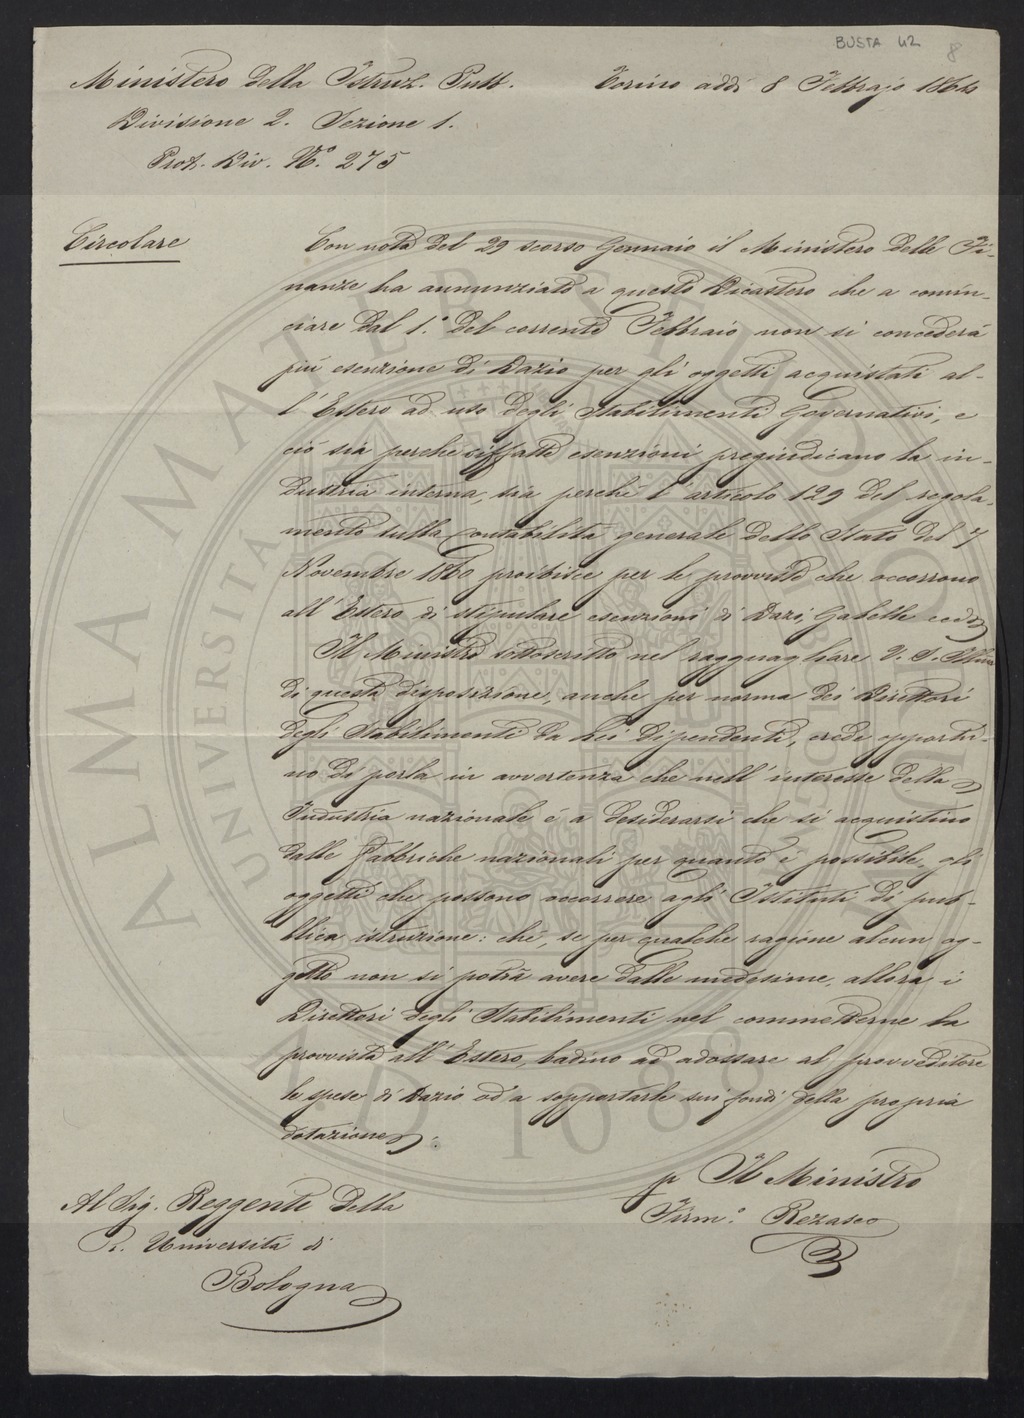 BUSTA 42
8
Ministero della Istruz. Pubb. Torino addì 8 Febbrajo 1864
Divisione 2. Sezione 1.
Prot. Div. N.° 275
Circolare
Con nota del 29 scorso Gennaio il Ministero delle Fi-
nanze ha annunziato a questo Dicastero che a comin-
ciare dal 1.° del corrente Febbraio non si concederà
più esenzione di Dazio per gli oggetti acquistati al-
l'Estero ad uso degli Stabilimenti Governativi, e
ciò sia perchè siffatte esenzioni pregiudicano la in-
dustria interna, sia perchè l'articolo 129 del regola-
mento sulla Contabilità generale dello Stato del 7
Novembre 1860 proibisce per le provviste che occorrono
all'Estero di stipulare esenzioni di Dazi, Gabelle ecc.
Il Ministro sottoscritto nel ragguagliare V. S. Ill.ma
di questa disposizione, anche per norma dei Direttori
degli Stabilimenti da Lei dipendenti, crede opportu-
no di porla in avvertenza che nell'interesse della
Industria nazionale è a desiderarsi che si acquistino
dalle Fabbriche nazionali per quanto è possibile, gli
oggetti che possono occorrere agli Istituti di pub-
blica istruzione: chè, se per qualche ragione alcun og-
getto non si potrà avere dalle medesime, allora i
Direttori degli Stabilimenti nel commetterne la
provvista all'Estero, badino ad adossare al provveditore
le spese di Dazio od a sopportarle sui fondi della propria
dotazione.
p Il Ministro
Firm.° Rezasco
Al Sig. Reggente della
R. Università di
Bologna
ALMA MATER STUDIORUM
UNIVERSITÀ DI BOLOGNA
A.D. 1088